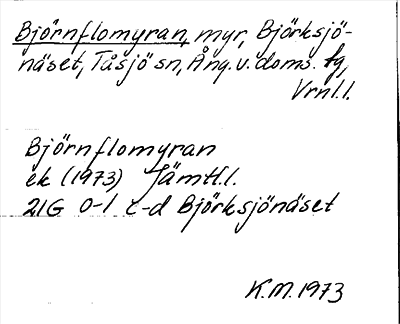 Björnflomyran, myr, Björksjö-
näset, Tåsjö sn, Ång. v. doms. fg,
Vrnl.l.
Björnflomyran
ek (1973) Jämtl.l.
21G 0-1 c-d Björksjönäset
K.M. 1973